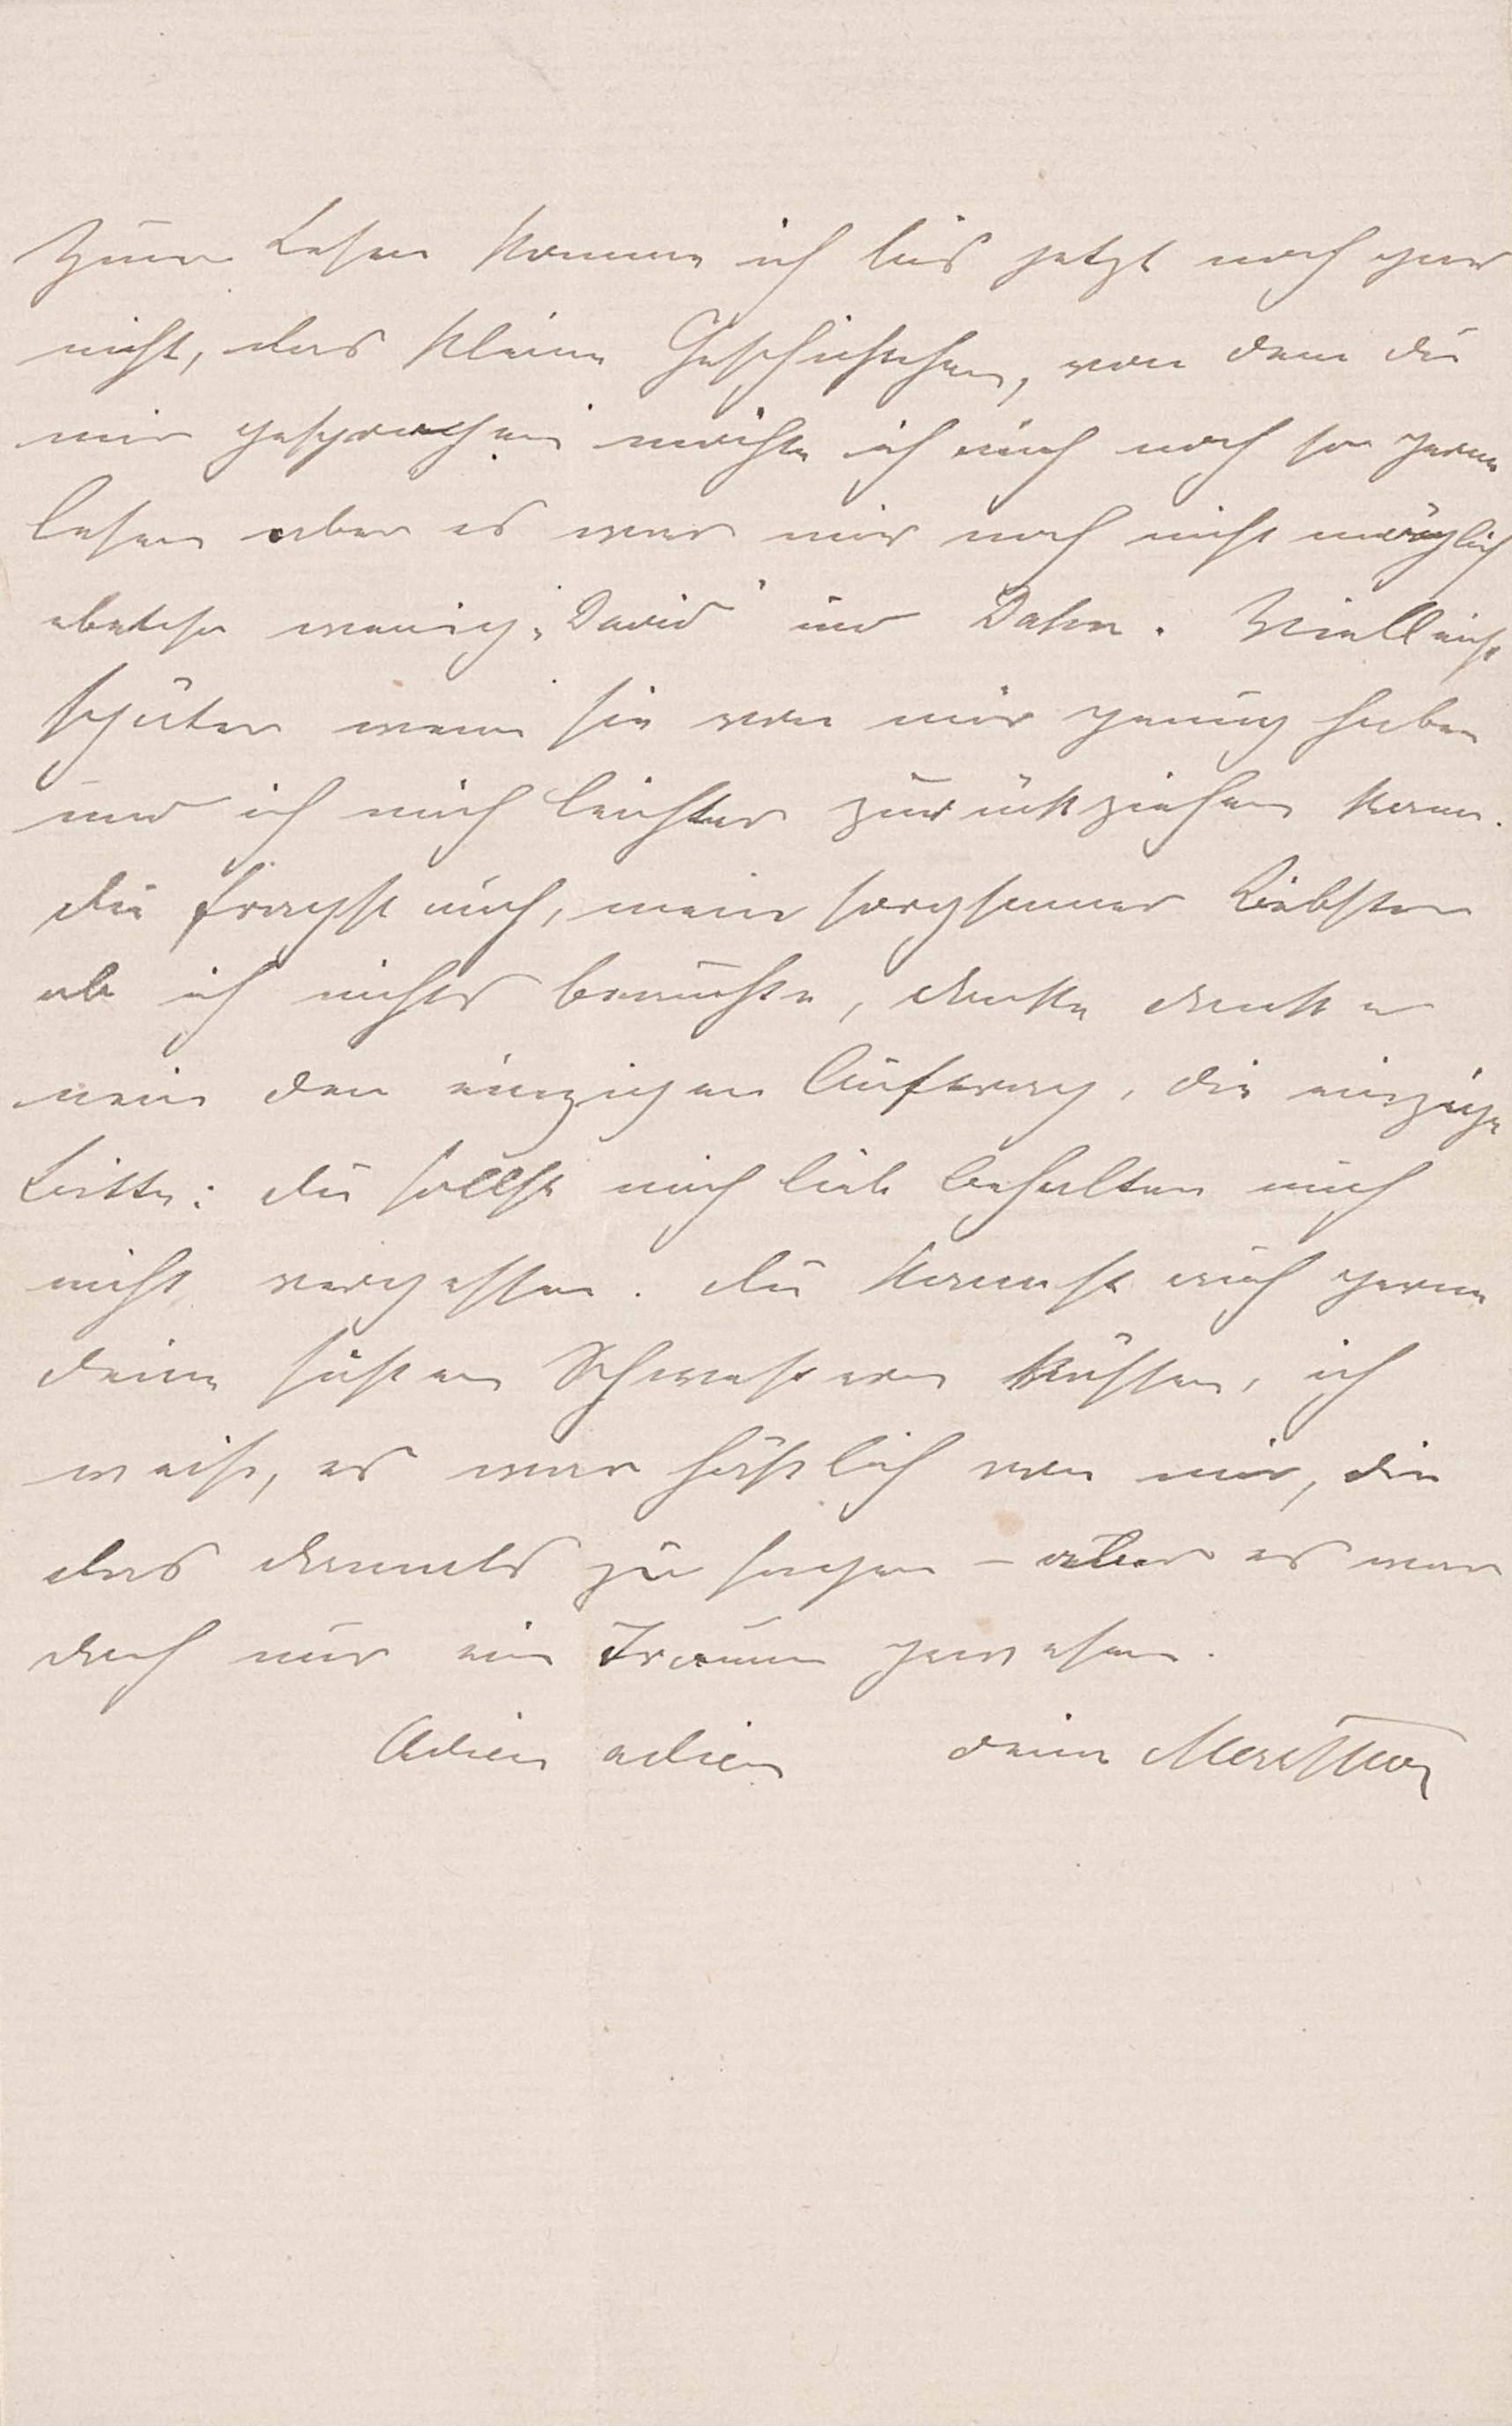 Zum Lesen komme ich bis jetzt noch gar
nicht, das kleine Geschichtchen, von dem du
mir gesprochen möchte ich auch noch so gerne
lesen aber es war mir noch nicht möglich
ebenso wenig „David" und Dahn. Vielleicht
später wenn sie von mir genug haben
und ich mich leichter zurückziehen kann.
du fragst auch, mein sorgsamer Liebster
ob ich nichts brauchte, danke danke
nein den einzigen Auftrag, die einzige
Bitte: du sollst mich lieb behalten mich
nicht vergessen. du kannst auch gerne
deine süssen Schwestern küssen, ich
weiß, es war häßlich von mir, dir
das damals zu sagen – aber es war
doch nur ein Traum gewesen.
Adieu adieu deine